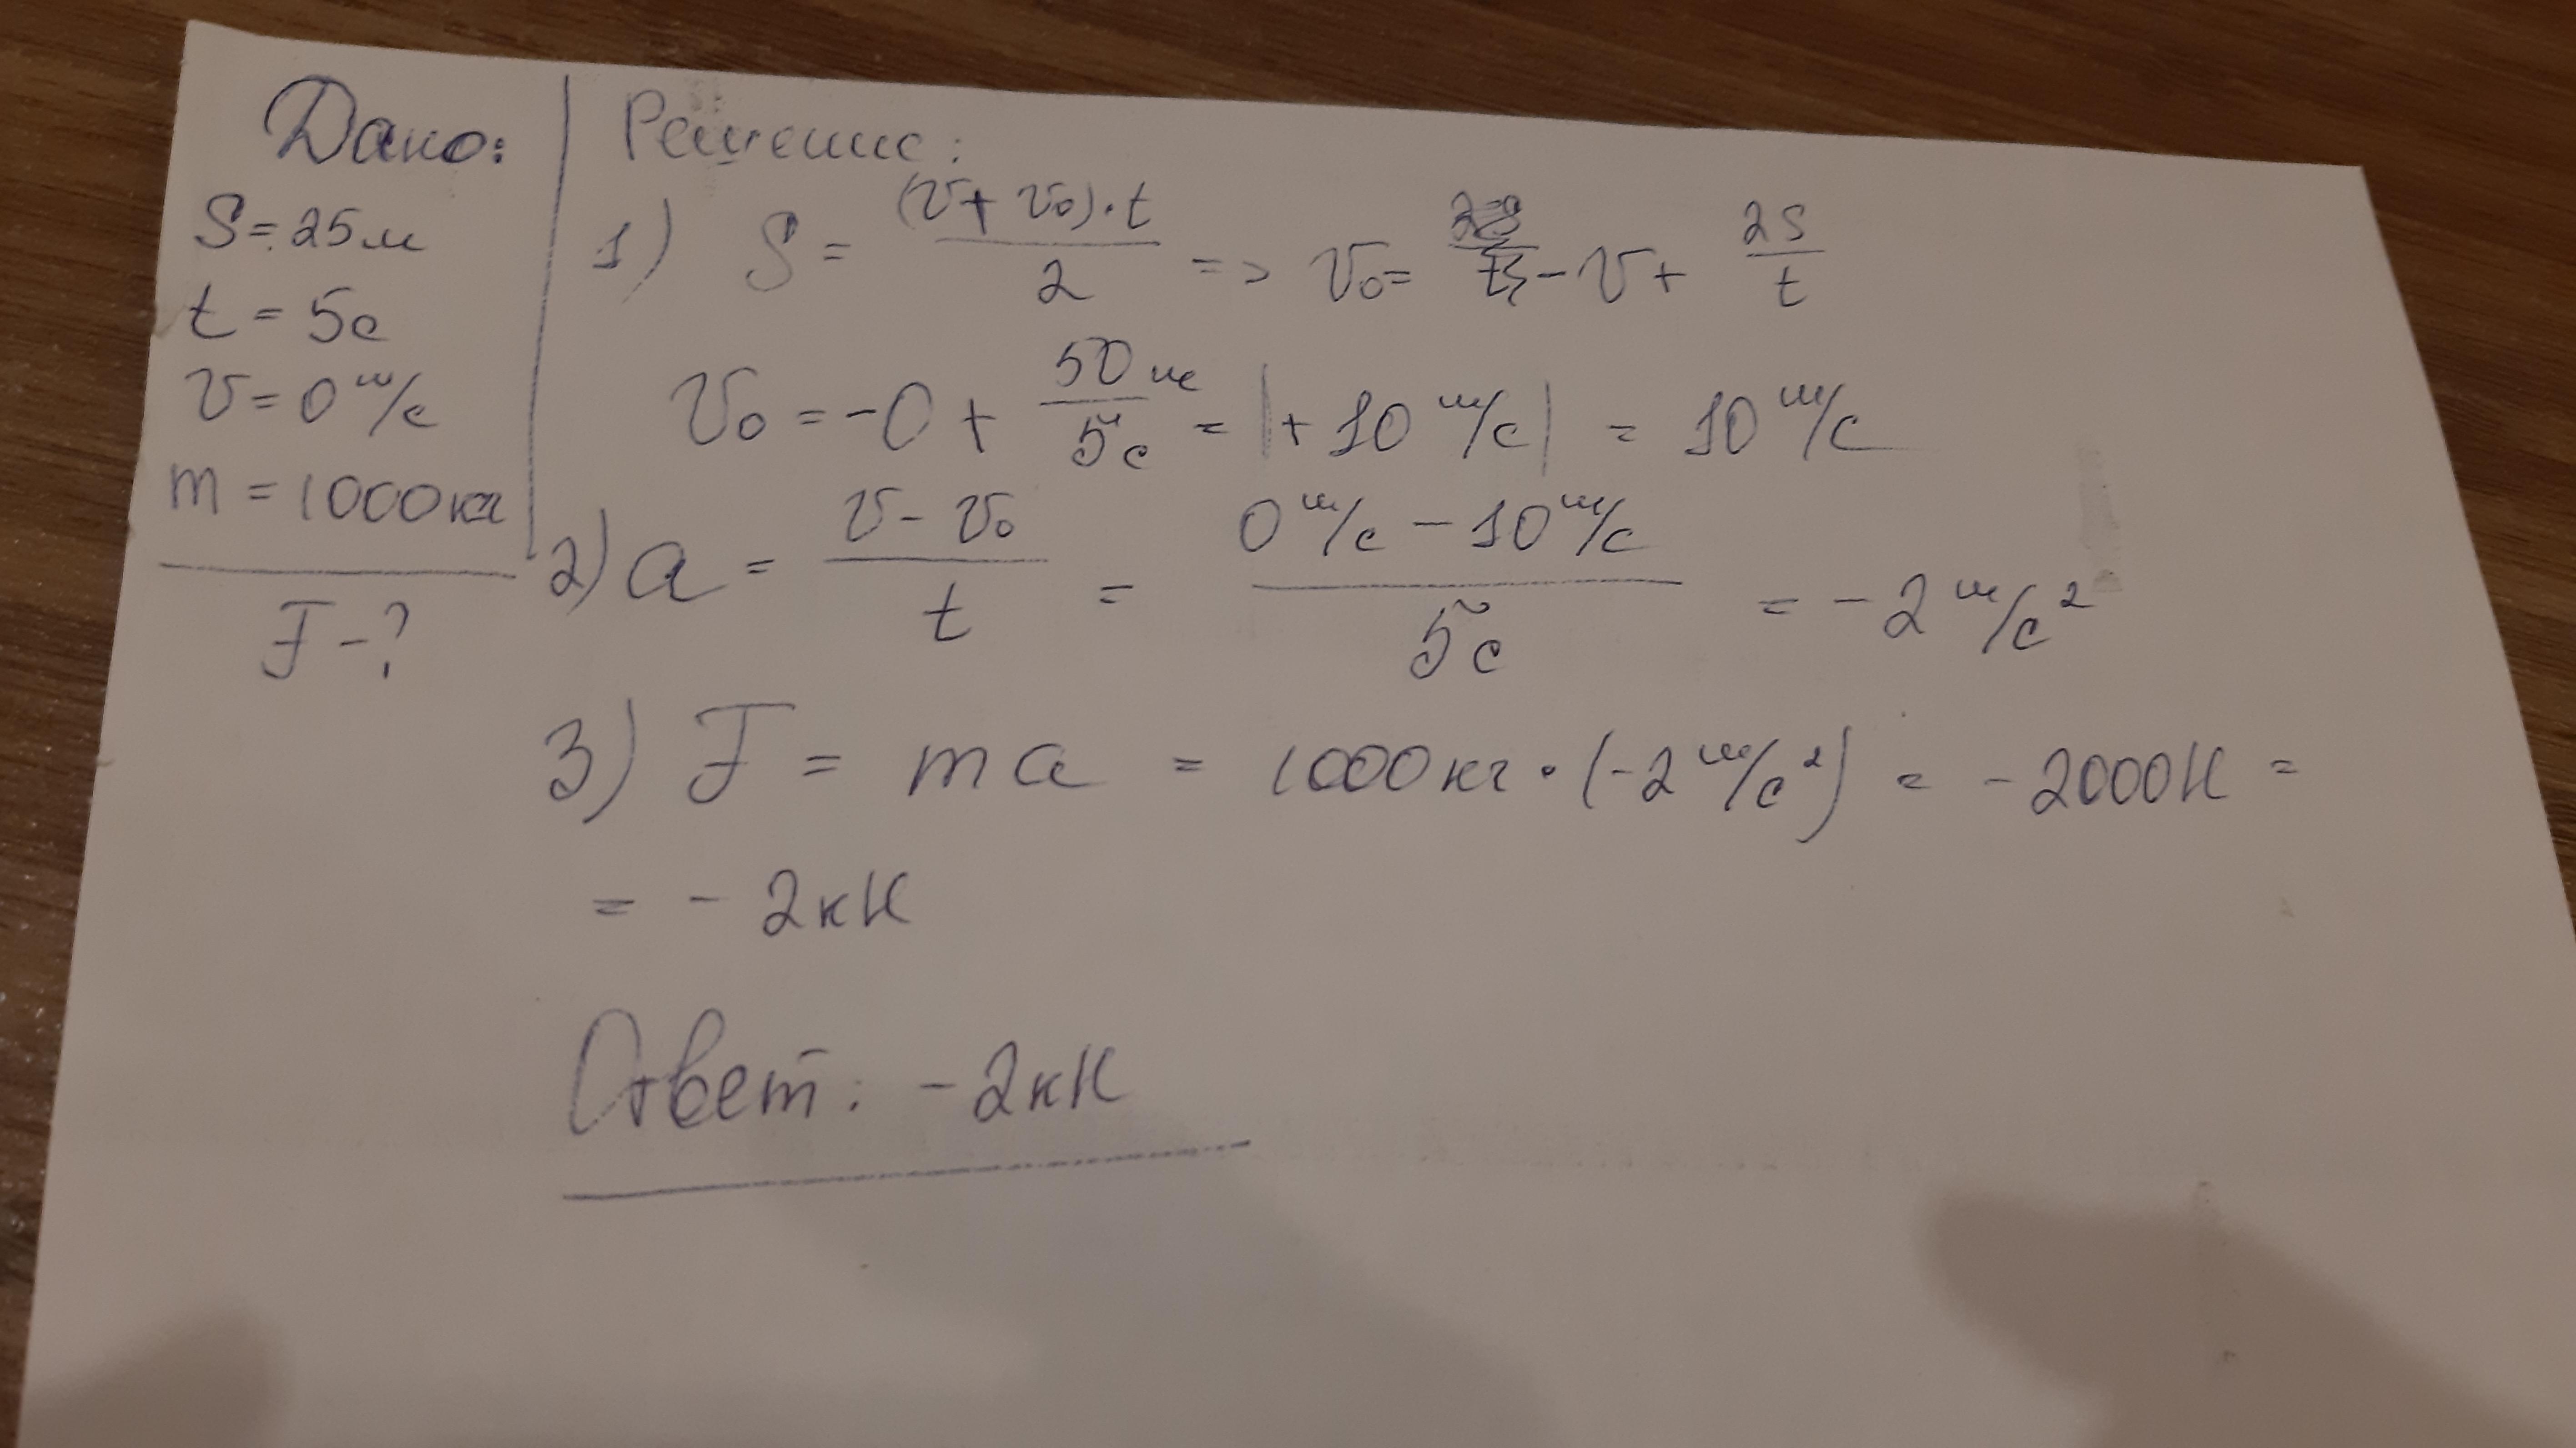 Дано:
S = 25м
t = 5с
v = 0 м/с
m = 1000кг
F - ?
Решение:
1) S = (v + v₀)·t / 2 => v₀ = - v + 2S / t
v₀ = -0 + 50м / 5с = |+10 м/с| = 10 м/с
2) a = v - v₀ / t = 0 м/с - 10 м/с / 5с = -2 м/с²
3) F = ma = 1000кг · (-2 м/с²) = -2000Н =
= - 2кН
Ответ: -2кН